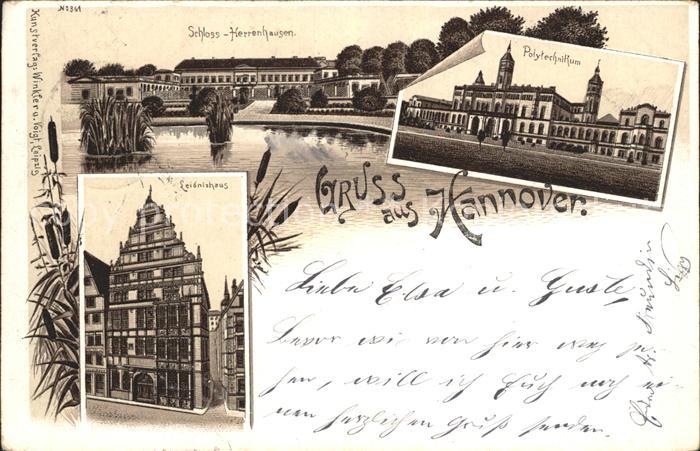 No 361
Schloss-Herrenhausen.
Kunstverlag: Winkler u. Voigt, Leipzig
Polytechnikum
Leibnizhaus
GRUSS
aus Hannover.
Liebe Elsa u. Guste,
Bevor wir von hier weg zie-
hen, will ich Euch noch ei-
nen herzlichen Gruß senden.